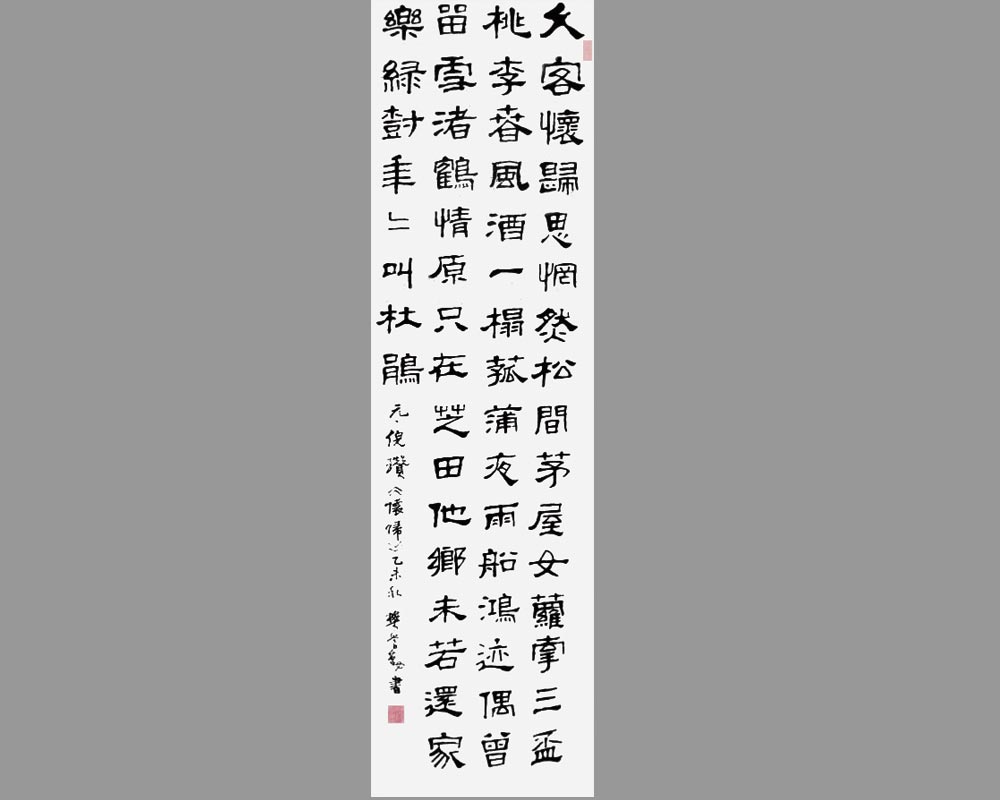 久客懷歸思惘然松間茅屋女蘿牽三盃
桃李春風酒一榻菰蒲夜雨船鴻迹偶曾
留雪渚鶴情原只在芝田他鄉未若還家
樂綠樹年〻叫杜鵑
元·倪瓚《懷歸》乙未秋 樊書